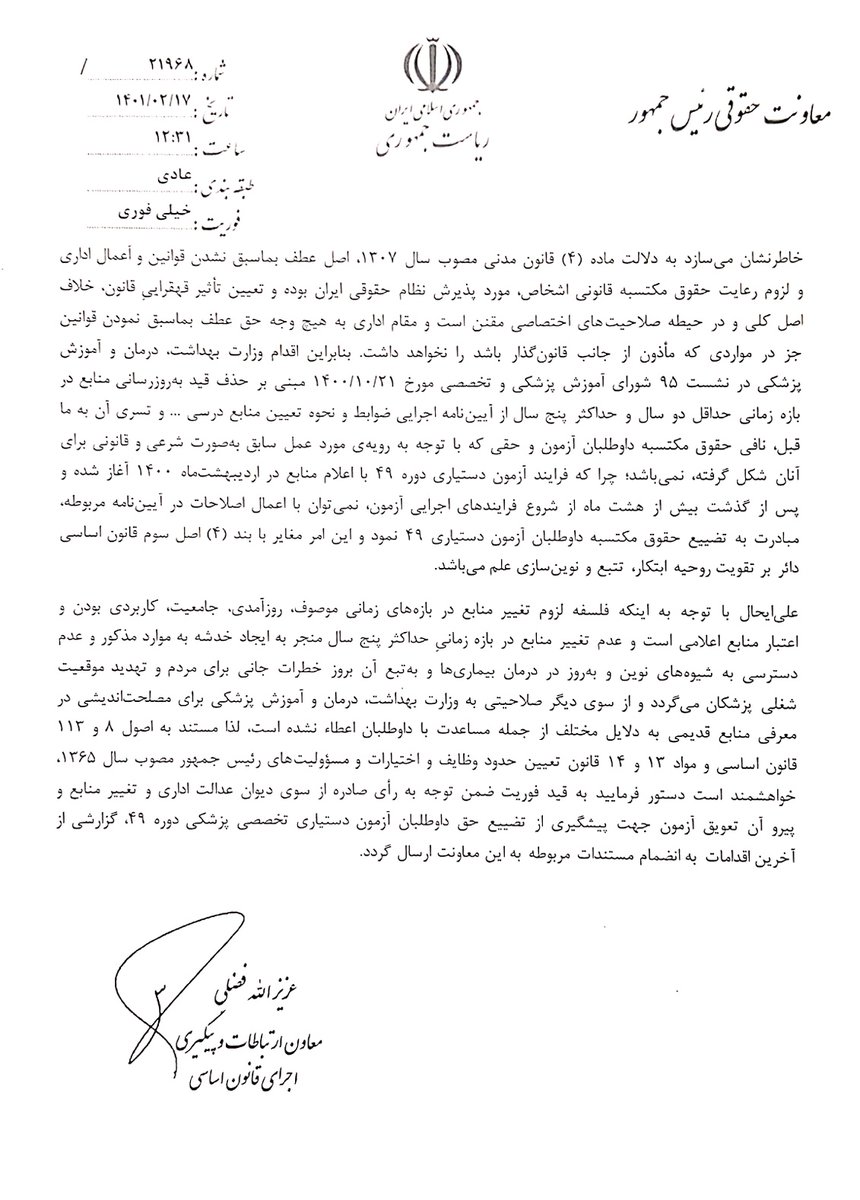 معاونت حقوقی رئیس جمهور
جمهوری اسلامی ایران
ریاست جمهوری
شماره : ۲۱۹۶۸ /
تاریخ : ۱۴۰۱/۰۲/۱۷
ساعت : ۱۲:۳۱
طبقه بندی : عادی
فوریت : خیلی فوری
خاطرنشان می‌سازد به دلالت ماده (۴) قانون مدنی مصوب سال ۱۳۰۷، اصل عطف بماسبق نشدن قوانین و أعمال اداری
و لزوم رعایت حقوق مکتسبه قانونی اشخاص، مورد پذیرش نظام حقوقی ایران بوده و تعیین تأثیر قهقراییِ قانون، خلاف
اصل کلی و در حیطه صلاحیت‌های اختصاصی مقنن است و مقام اداری به هیچ وجه حق عطف بماسبق نمودن قوانین
جز در مواردی که مأذون از جانب قانون‌گذار باشد را نخواهد داشت. بنابراین اقدام وزارت بهداشت، درمان و آموزش
پزشکی در نشست ۹۵ شورای آموزش پزشکی و تخصصی مورخ ۱۴۰۰/۱۰/۲۱ مبنی بر حذف قید به‌روزرسانی منابع در
بازه زمانی حداقل دو سال و حداکثر پنج سال از آیین‌نامه اجرایی ضوابط و نحوه تعیین منابع درسی ... و تسری آن به ما
قبل، نافی حقوق مکتسبه داوطلبان آزمون و حقی که با توجه به رویه‌ی مورد عمل سابق به‌صورت شرعی و قانونی برای
آنان شکل گرفته، نمی‌باشد؛ چرا که فرایند آزمون دستیاری دوره ۴۹ با اعلام منابع در اردیبهشت‌ماه ۱۴۰۰ آغاز شده و
پس از گذشت بیش از هشت ماه از شروع فرایندهای اجرایی آزمون، نمی‌توان با اعمال اصلاحات در آیین‌نامه مربوطه،
مبادرت به تضییع حقوق مکتسبه داوطلبان آزمون دستیاری ۴۹ نمود و این امر مغایر با بند (۴) اصل سوم قانون اساسی
دائر بر تقویت روحیه ابتکار، تتبع و نوین‌سازی علم می‌باشد.
علی‌ایحال با توجه به اینکه فلسفه لزوم تغییر منابع در بازه‌های زمانی موصوف، روزآمدی، جامعیت، کاربردی بودن و
اعتبار منابع اعلامی است و عدم تغییر منابع در بازه زمانیِ حداکثر پنج سال منجر به ایجاد خدشه به موارد مذکور و عدم
دسترسی به شیوه‌های نوین و به‌روز در درمان بیماری‌ها و به‌تبع آن بروز خطرات جانی برای مردم و تهدید موقعیت
شغلی پزشکان می‌گردد و از سوی دیگر صلاحیتی به وزارت بهداشت، درمان و آموزش پزشکی برای مصلحت‌اندیشی در
معرفی منابع قدیمی به دلایل مختلف از جمله مساعدت با داوطلبان اعطاء نشده است، لذا مستند به اصول ۸ و ۱۱۳
قانون اساسی و مواد ۱۳ و ۱۴ قانون تعیین حدود وظایف و اختیارات و مسؤولیت‌های رئیس جمهور مصوب سال ۱۳۶۵،
خواهشمند است دستور فرمایید به قید فوریت ضمن توجه به رأی صادره از سوی دیوان عدالت اداری و تغییر منابع و
پیرو آن تعویق آزمون جهت پیشگیری از تضییع حق داوطلبان آزمون دستیاری تخصصی پزشکی دوره ۴۹، گزارشی از
آخرین اقدامات به انضمام مستندات مربوطه به این معاونت ارسال گردد.
عزیز الله فضلی
معاون ارتباطات و پیگیری
اجرای قانون اساسی